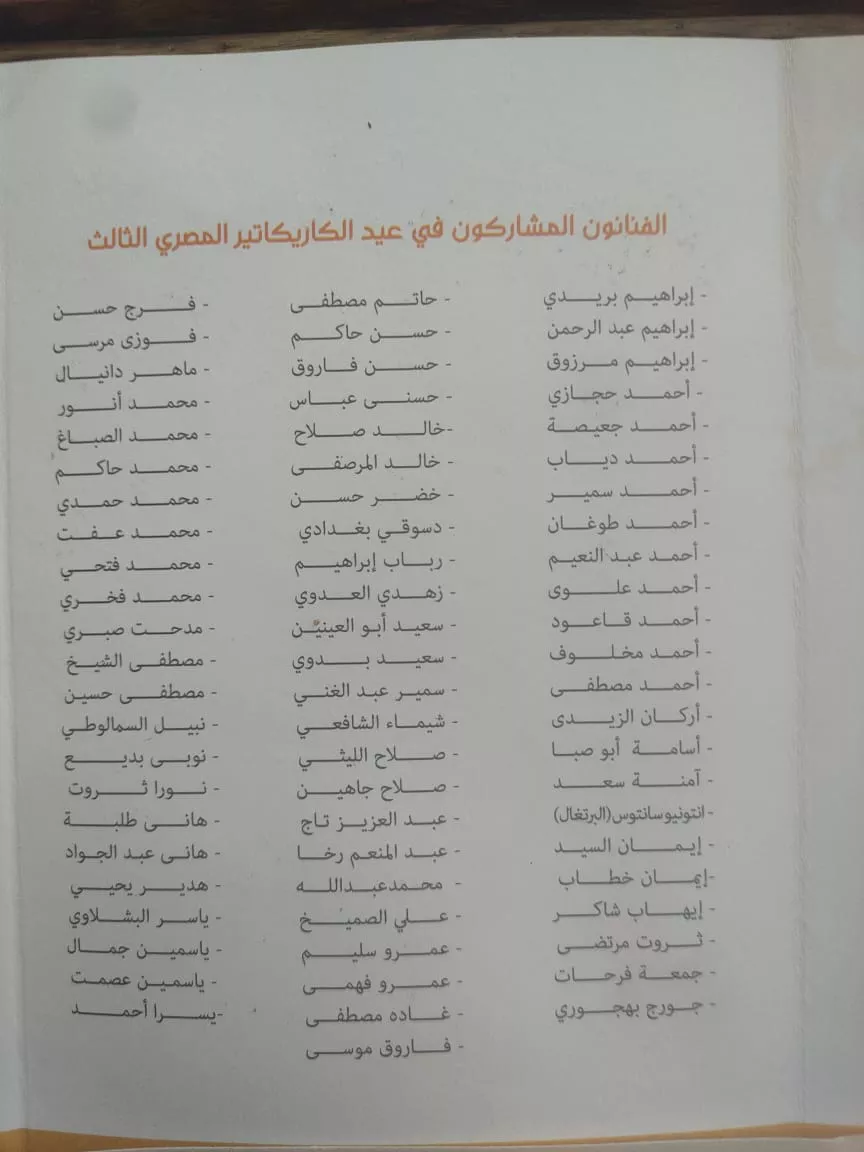 الفنانون المشاركون في عيد الكاريكاتير المصري الثالث
- إبراهيم بريدي
- إبراهيم عبد الرحمن
- إبراهيم مرزوق
- أحمد حجازي
- أحمد جعيصة
- أحمد دياب
- أحمد سمير
- أحمد طوغان
- أحمد عبد النعيم
- أحمد علوى
- أحمد قاعود
- أحمد مخلوف
- أحمد مصطفى
- أركان الزيدى
- أسامة أبو صبا
- آمنة سعد
- انتونيو سانتوس (البرتغال)
- إيمان السيد
-إيمان خطاب
- إيهاب شاكر
- ثروت مرتضى
- جمعة فرحات
- جورج بهجوري
- حاتم مصطفى
- حسن حاكم
- حسن فاروق
- حسنى عباس
-خالد صلاح
- خالد المرصفى
- خضر حسن
- دسوقي بغدادي
- رباب إبراهيم
- زهدي العدوي
- سعيد أبو العينين
- سعيد بدوي
- سمير عبد الغني
- شيماء الشافعي
- صلاح الليثي
- صلاح جاهين
- عبد العزيز تاج
- عبد المنعم رخا
- محمدعبدالله
- علي الصميخ
- عمرو سليم
- عمرو فهمى
- غاده مصطفى
- فاروق موسى
- فرج حسن
- فوزى مرسى
- ماهر دانيال
- محمد أنور
- محمد الصباغ
- محمد حاكم
- محمد حمدي
- محمد عفت
- محمد فتحي
- محمد فخري
- مدحت صبري
- مصطفى الشيخ
- مصطفى حسين
- نبيل السمالوطي
- نوبى بديع
- نورا ثروت
- هانى طلبة
- هانى عبد الجواد
- هدير يحيي
- ياسر البشلاوي
- ياسمين جمال
- ياسمين عصمت
-يسرا أحمد